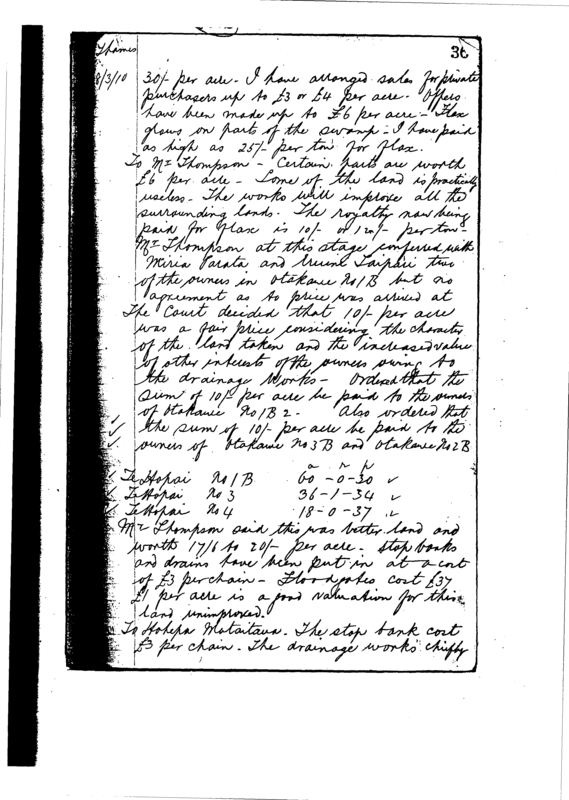 Thames 36
8/3/10 30/- per acre - I have arranged sales for private
purchasers up to £3 or £4 per acre. Offers
have been made up to £6 per acre - Flax
grows on parts of the swamp - I have paid
as high as 25/- per ton for flax.
To Mr Thompson - Certain parts are worth
£6 per acre - Some of the land is practically
useless - The works will improve all the
surrounding lands. The royalty now being
paid for flax is 10/- or 12/- per ton -
Mr Thompson at this stage conferred with
Miria Parata and Taipari two
of the owners in Otakawe No 1B but no
agreement as to price was arrived at
The Court decided that 10/- per acre
was a fair price considering the character
of the land taken and the increased value
of other interests of the owners owing to
the drainage works - Ordered that the
sum of 10/- per acre be paid to the owners
of Otakawe No 1B 2. Also ordered that
the sum of 10/- per acre be paid to the
owners of Otakawe No 3B and Otakawe No 2B
a r p
Te Hopai No 1B 60-0-30 ✓
Te Hopai No 3 36-1-34 ✓
Te Hopai No 4 18-0-37 ✓
Mr Thompson said this was better land and
worth 17/6 to 20/- per acre. Stop banks
and drains have been put in at a cost
of £3 per chain - Floodgates cost £37
£1 per acre is a good valuation for this
land unimproved.
To Hohepa Mataitaua. The stop bank cost
£3 per chain. The drainage works chiefly